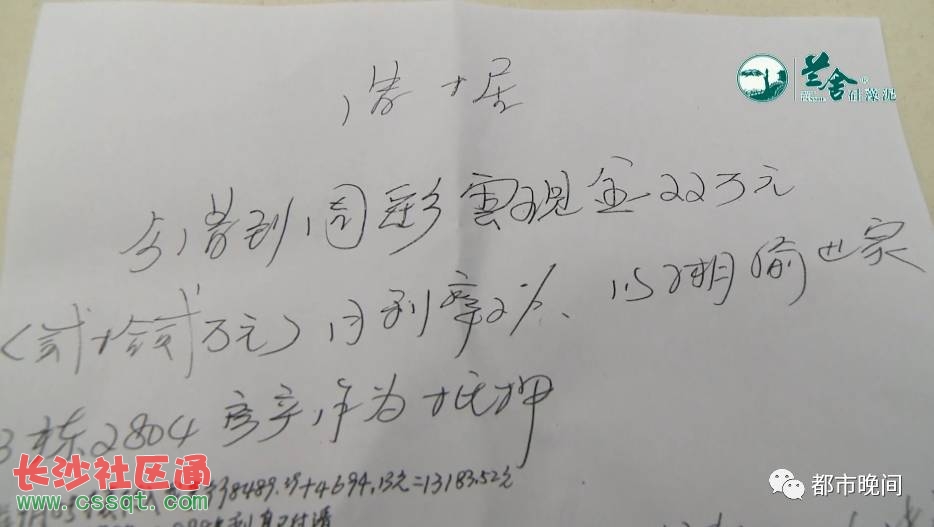 兰舍®
硅藻泥
借据
今借到周彩雲现金22万元
(贰拾贰万元)月利率2%、以 世家
3栋2804房产作为抵押
8489.39+4694.13元=13183.52元
长沙社区通
www.cssqt.com
都市晚间